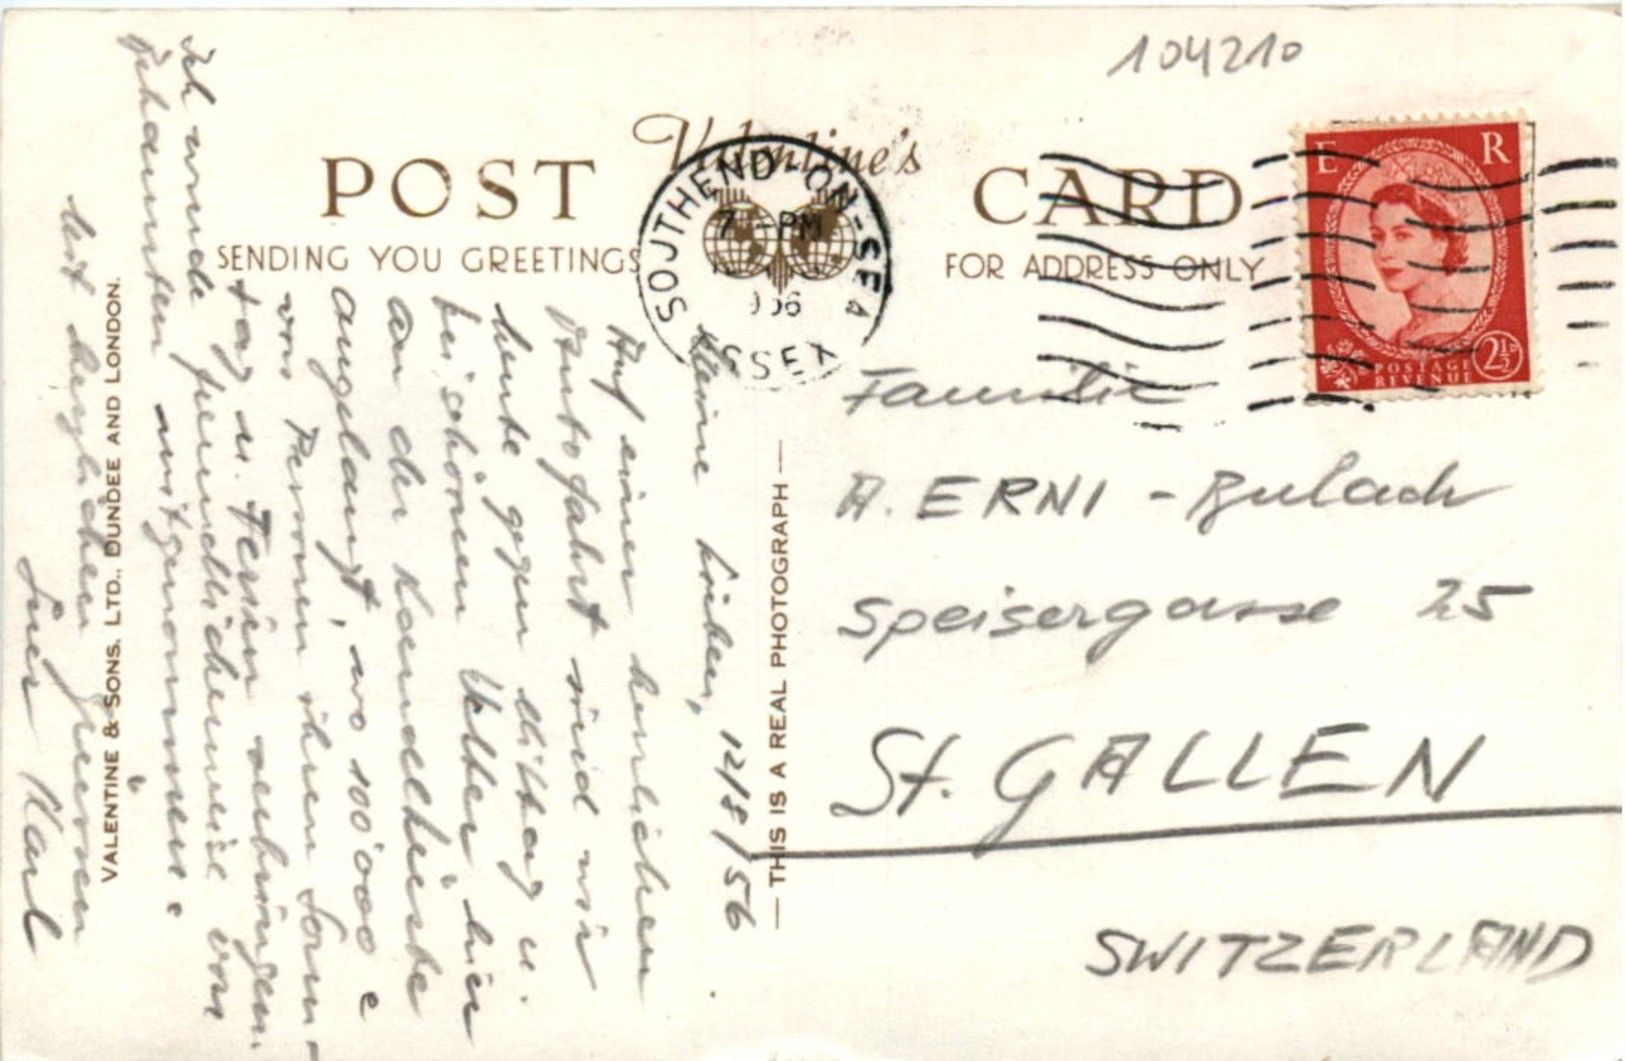 104210
Valentine's
POST CARD
SENDING YOU GREETINGS
FOR ADDRESS ONLY
SOUTHEND-ON-SEA
7 - PM
956
ESSEX
E R
POSTAGE
REVENUE
2½D
Meine Lieben, 12/8/56
Auf einer herrlichen
Autofahrt sind wir
heute gegen Mittag u.
bei schönem Wetter hier
an der Kanalküste
angelangt, wo 100'000 e
von Personen ihren Sonn-
tag u. Ferien verbringen
Ich wurde freundlicherweise von
Bekannten mitgenommen.
Mit herzlichen Grüssen
Euer Karl
VALENTINE & SONS. LTD., DUNDEE AND LONDON.
THIS IS A REAL PHOTOGRAPH
Familie
A. ERNI -
Speisergasse 25
St. GALLEN
SWITZERLAND